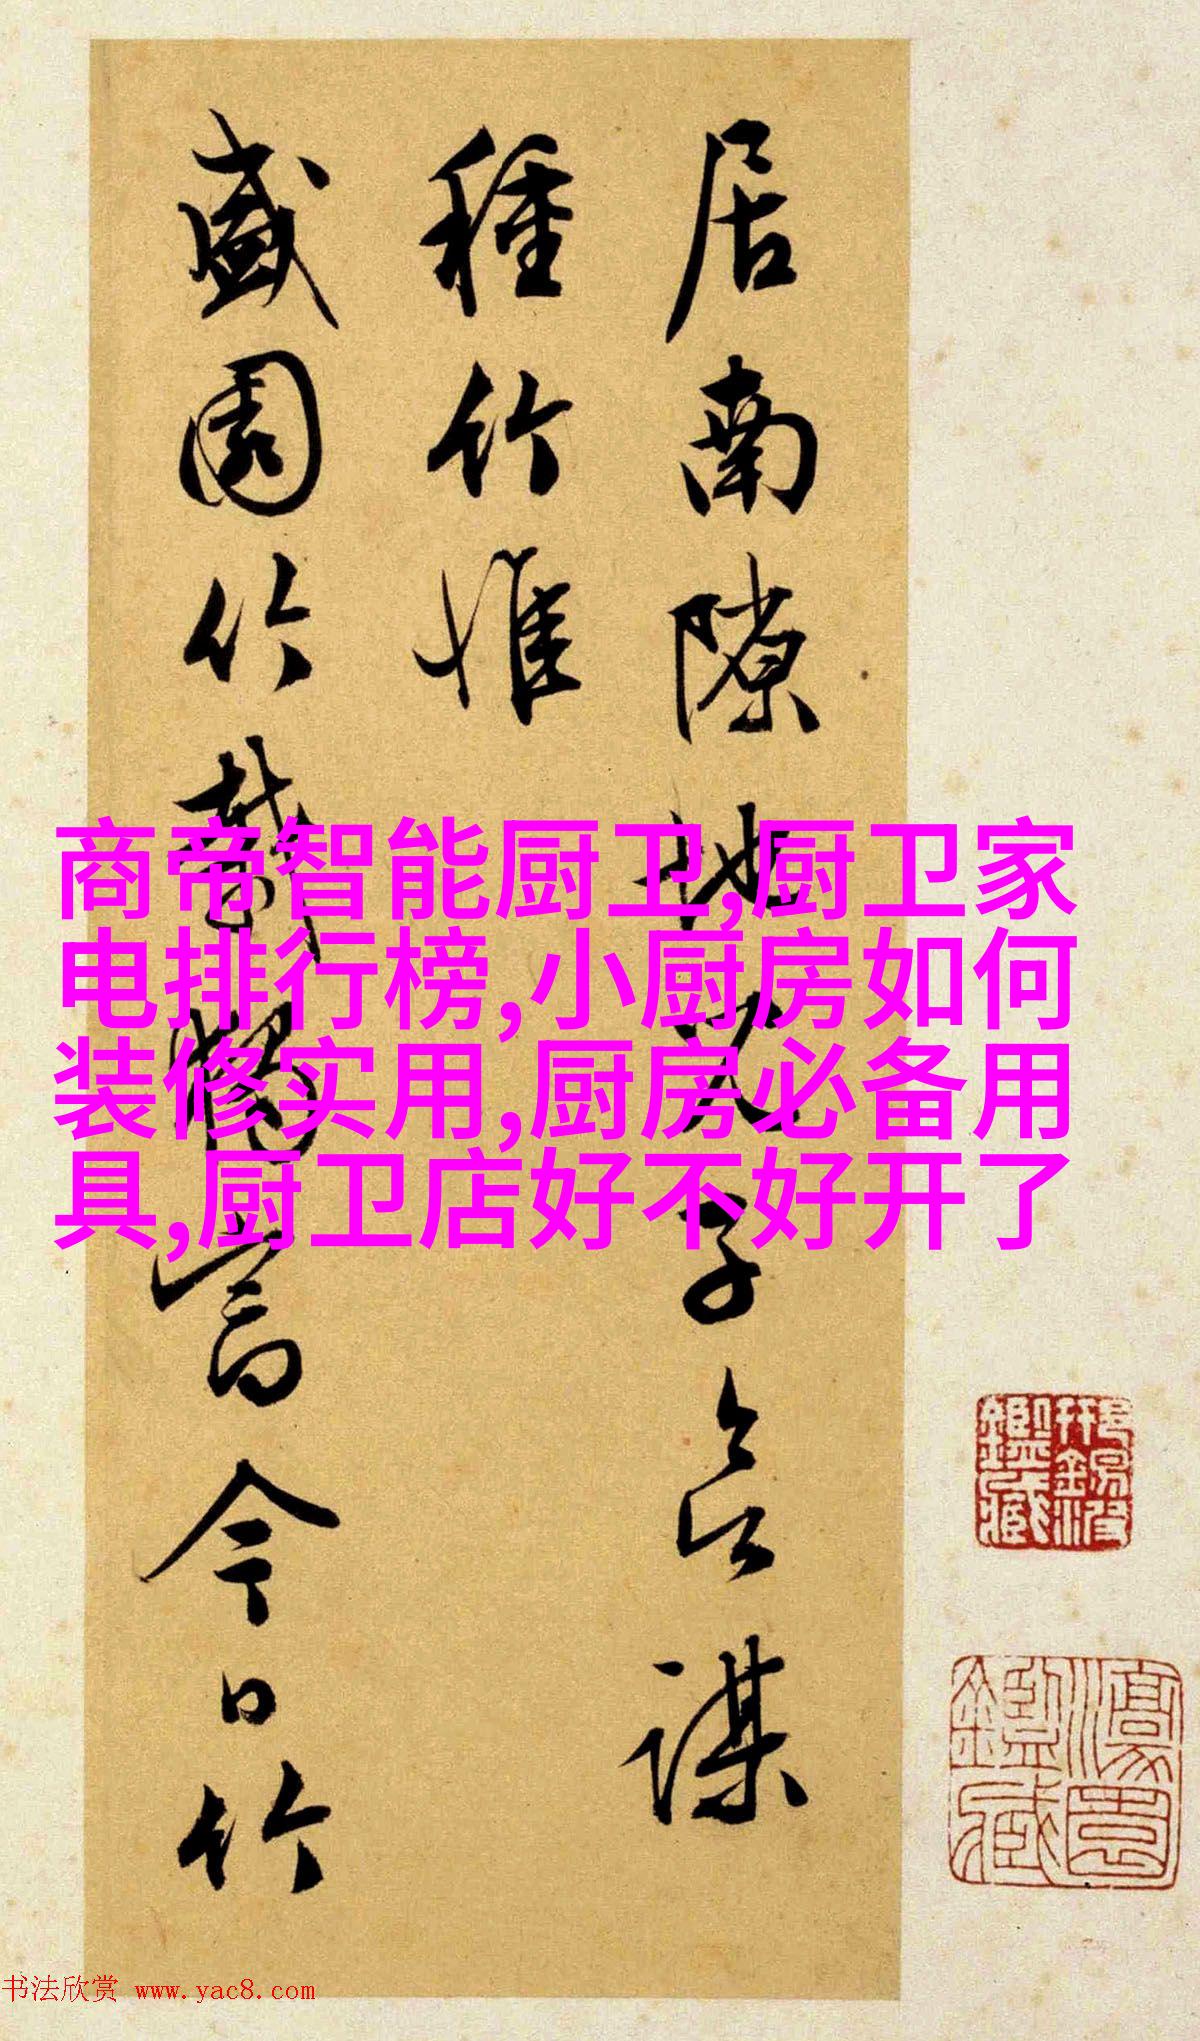 居南隙地 子 謀
種竹惟
盛園竹 今日竹
商帝智能厨卫,厨卫家
电排行榜,小厨房如何
装修实用,厨房必备用
具,厨卫店好不好开了
鑑藏
鑑藏
书法欣赏 www.yac8.com